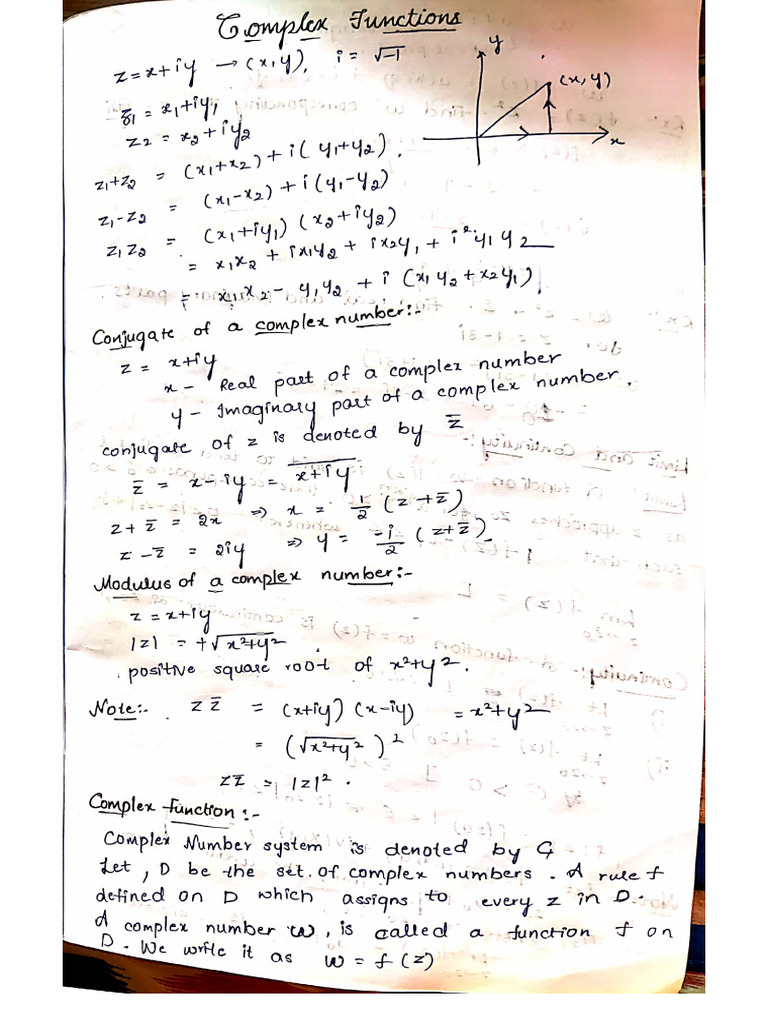 Complex Functions
z = x+iy → (x,y), i = √-1
y
(x,y)
x
z1 = x1+iy1
z2 = x2+iy2
z1+z2 = (x1+x2)+i(y1+y2).
z1-z2 = (x1-x2)+i(y1-y2)
z1z2 = (x1+iy1)(x2+iy2)
= x1x2 + ix1y2 + ix2y1 + i²y1y2
= x1x2 - y1y2 + i (x1y2+x2y1).
Conjugate of a complex number:-
z = x+iy
x - Real part of a complex number
y - Imaginary part of a complex number.
conjugate of z is denoted by z̅
z̅ = x-iy = \overline{x+iy}
z+z̅ = 2x ⇒ x = 1/2 (z+z̅)
z-z̅ = 2iy ⇒ y = -i/2 (z+z̅).
Modulus of a complex number:-
z = x+iy
|z| = +√x²+y².
positive square root of x²+y².
Note:- zz̅ = (x+iy)(x-iy) = x²+y²
= (√x²+y²)²
zz̅ = |z|².
Complex function:-
Complex Number system is denoted by G
Let, D be the set of complex numbers. A rule f
defined on D which assigns to every z in D.
A complex number w, is called a function f on
D. We write it as w = f(z)